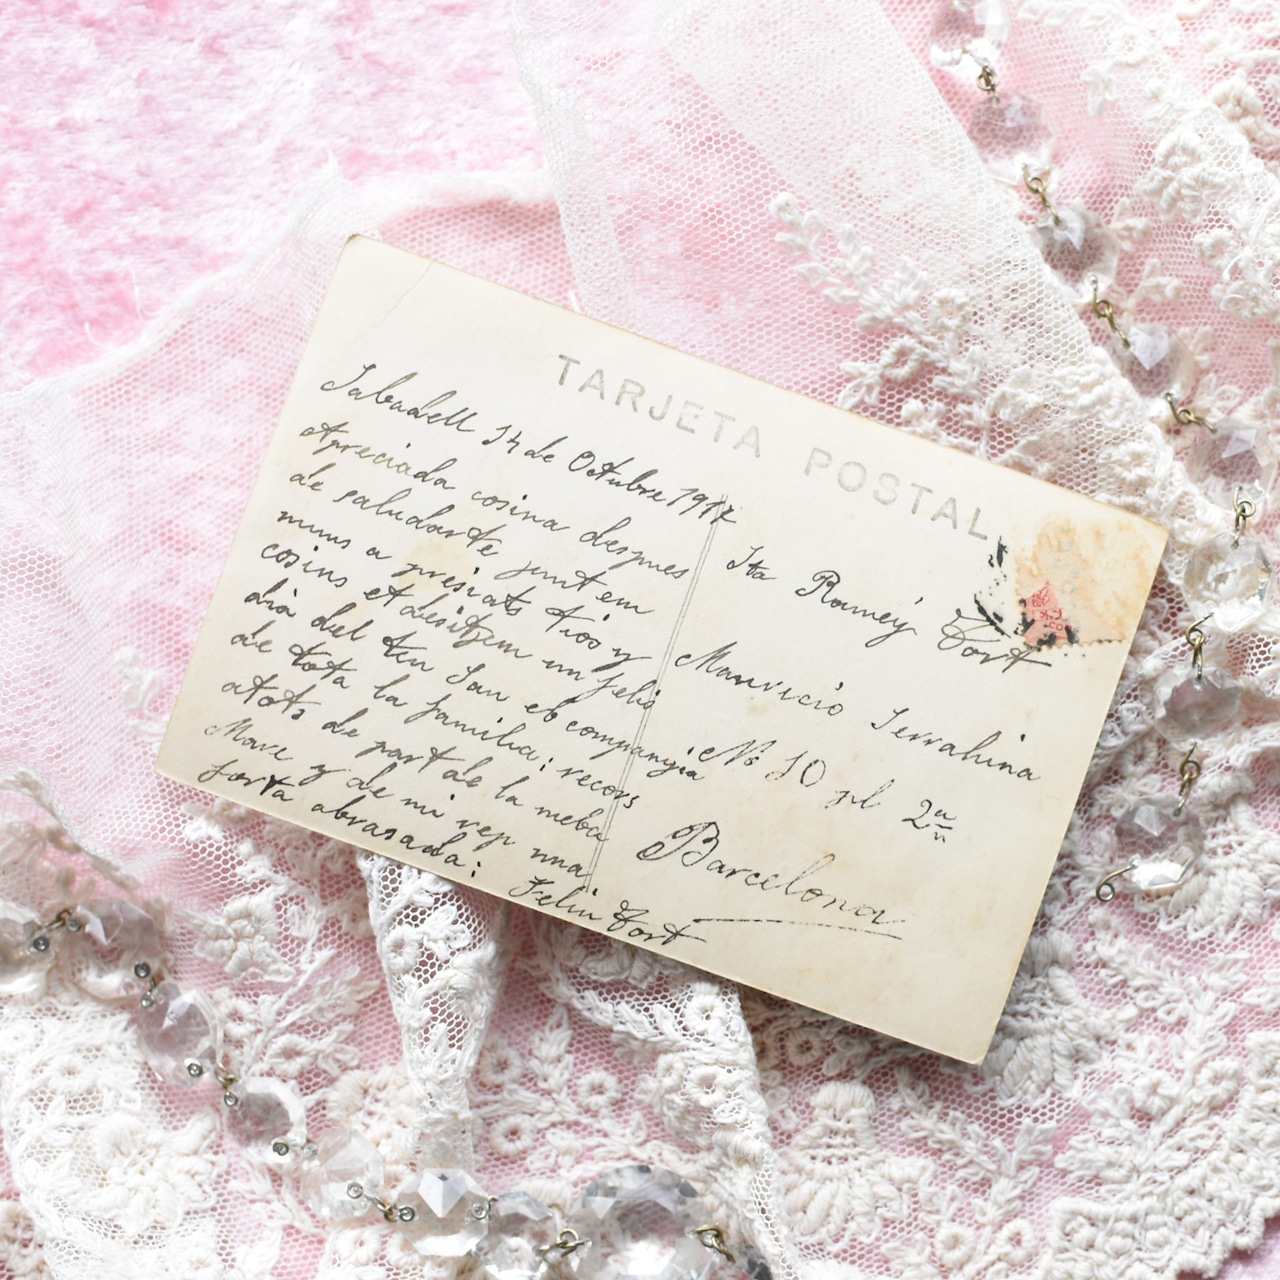 TARJETA POSTAL
Sabadell 14 de Octubre 1917
Apreciada cosina despues
de saludarte juntem
mums a presiats tios y
cosins et desitjem un felis
dia del teu San eb companyia
de tota la familia; recors
atots de part de la meba
Mare y de mi rep una
forta abrasada:
Feliu Tort
Sta Ramey Tort
Mauricio Serrahina
No 10 pl 2a
Barcelona